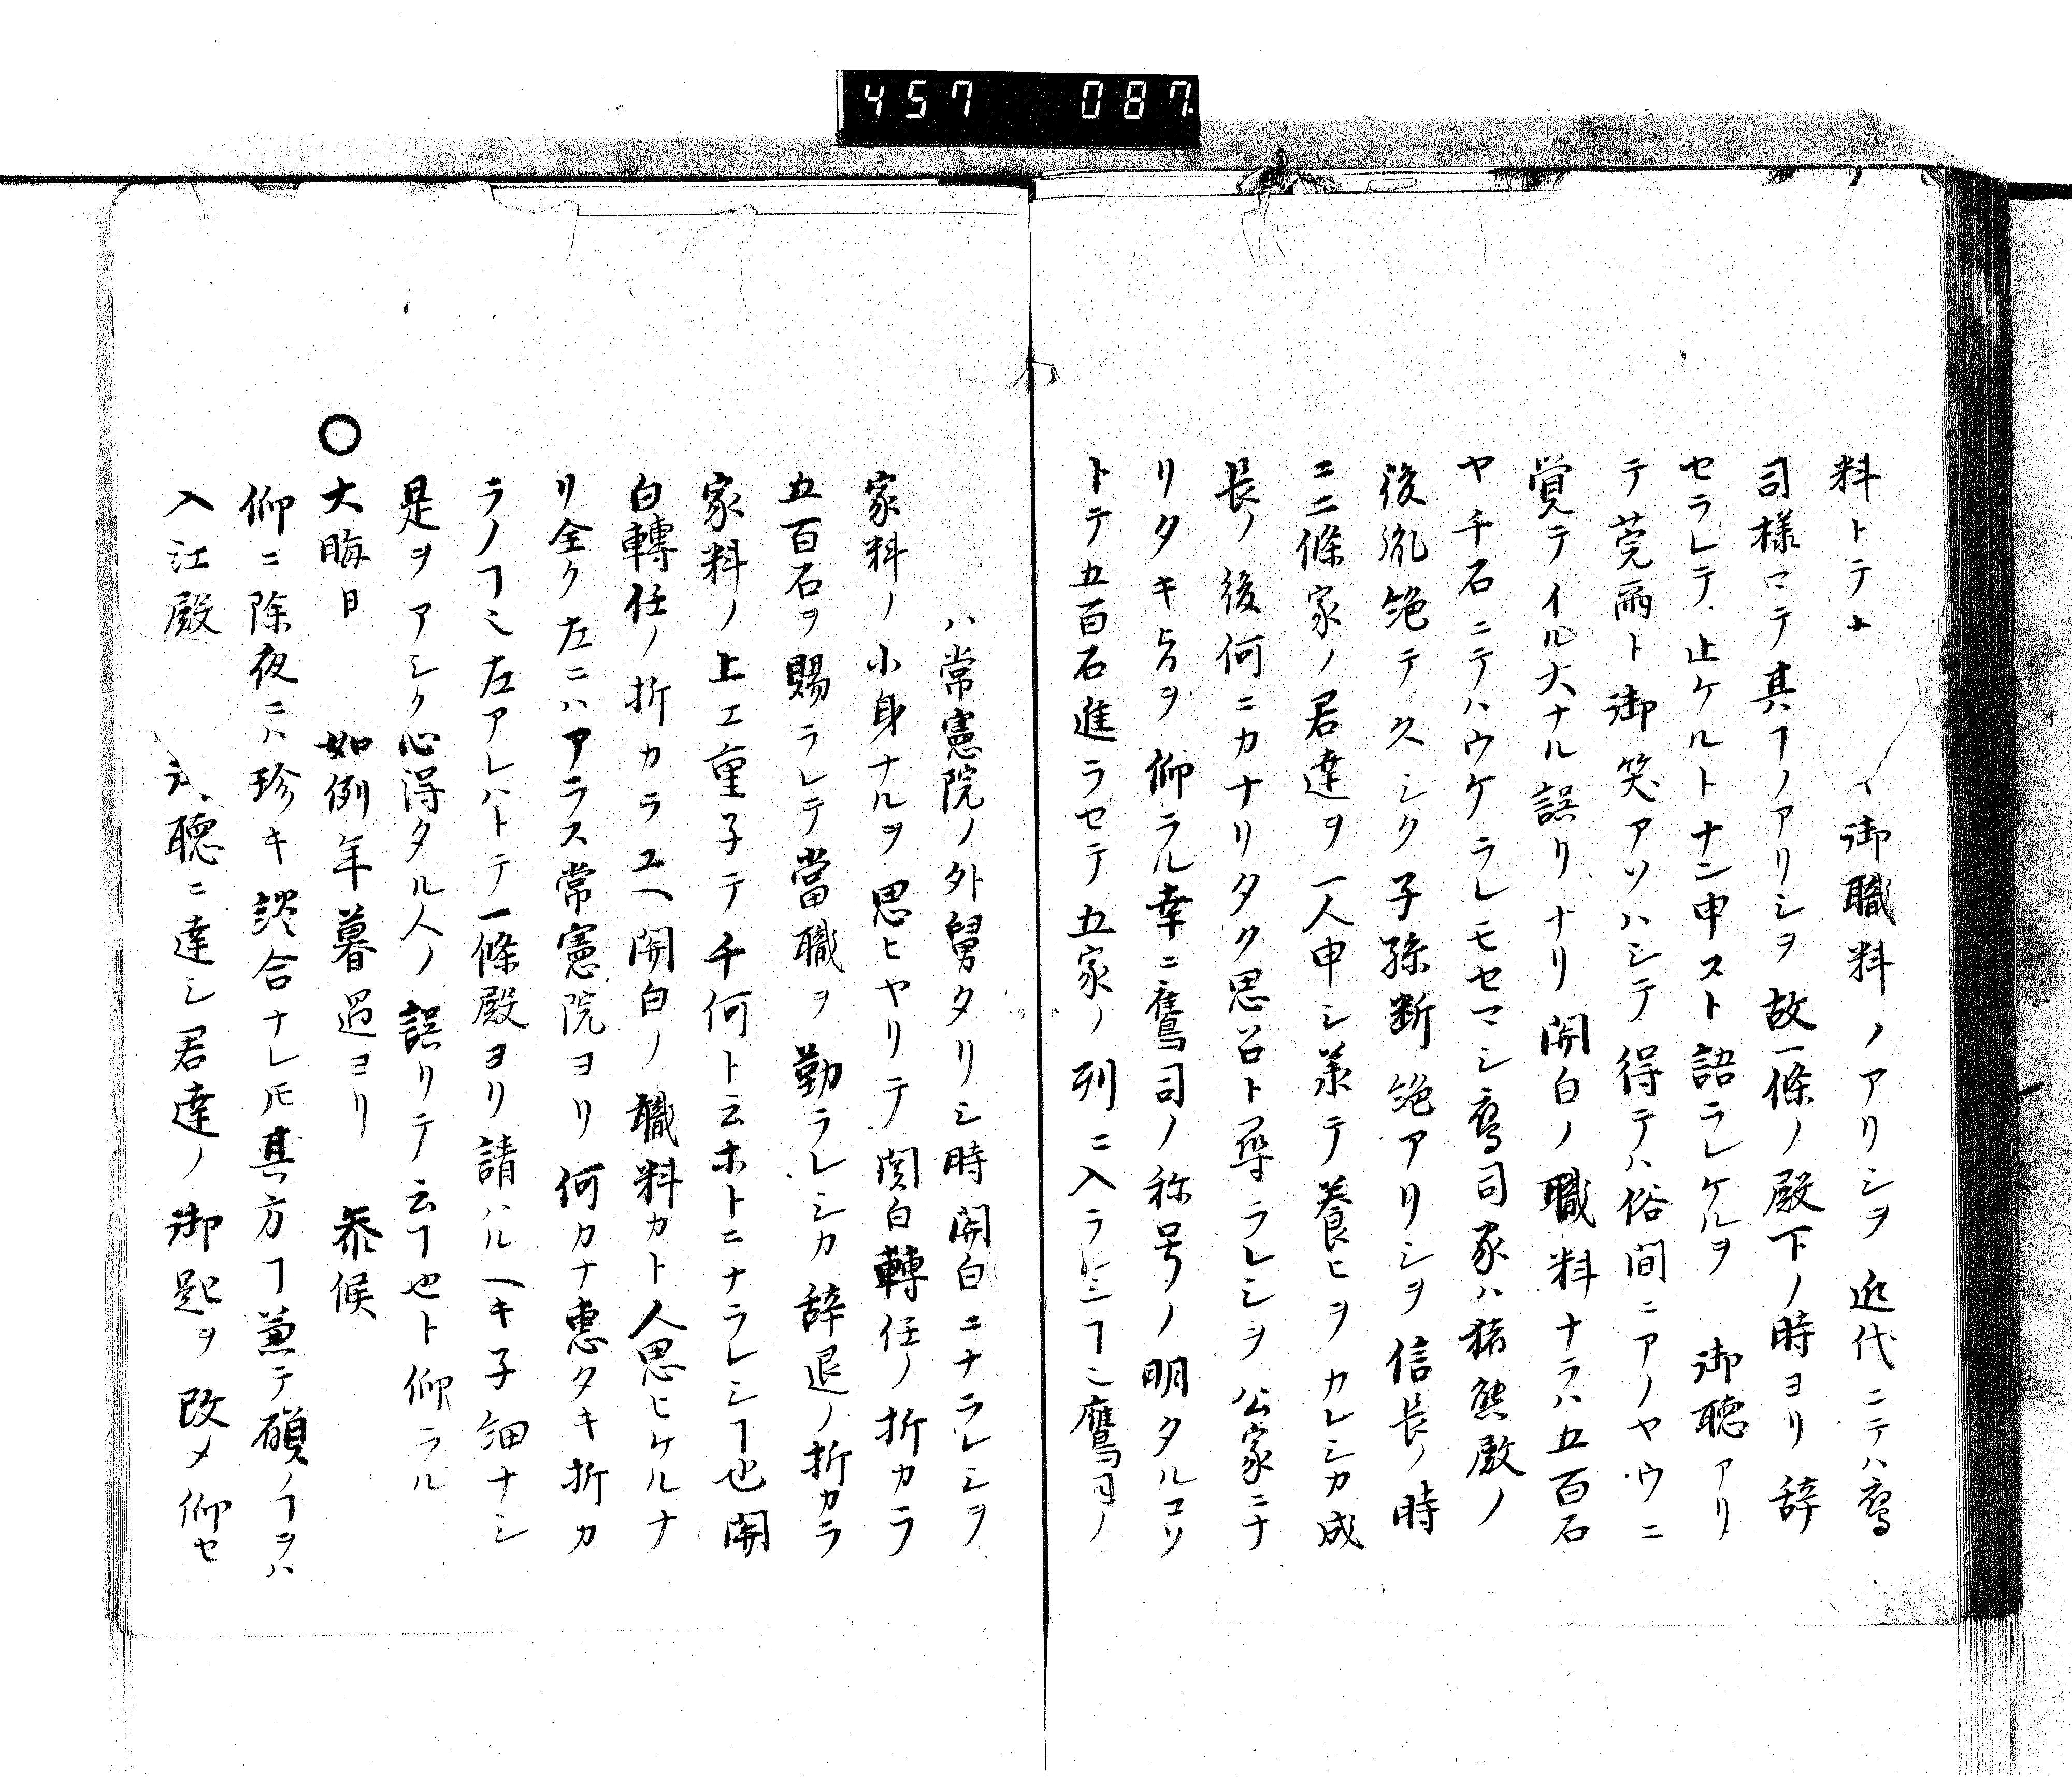 457 087
料トテナ 御職料ノアリシヲ近代ニテハ鷹
司様マテ其ヿノアリシヲ故一條ノ殿下ノ時ヨリ辞
セラレテ止ケルトナン申スト語ラレケルヲ 御聴アリ
テ莞爾ト御笑アソハシテ得テハ俗間ニアノヤウニ
覚テイル大ナル誤リナリ関白ノ職料ナラハ五百石
ヤ千石ニテハウケラレモセマシ鷹司家ハ猪熊殿ノ
後胤絶テ久シク子孫断絶アリシヲ信長ノ時
ニ二條家ノ君達ヲ一人申シ羕テ養ヒヲカレシカ成
長ノ後何ニカナリタク思召ト尋ラレシヲ公家ニナ
リタキ旨ヲ仰ラル幸ニ鷹司ノ称号ノ明タルコソ
トテ五百石進ラセテ五家ノ列ニ入ラ ヿ 鷹司ノ
ハ常憲院ノ外舅タリシ時関白ニナラレシヲ
家料ノ小身ナルヲ思ヒヤリテ関白轉任ノ折カラ
五百石ヲ賜ラレテ當職ヲ勤ラレシカ辞退ノ折カラ
家料ノ上エ重子テ千何ト云ホトニナラレシヿ也関
白轉任ノ折カラユヘ関白ノ職料カト人思ヒケルナ
リ全ク左ニハアラス常憲院ヨリ何カナ恵タキ折カ
ラノヿ 左アレハトテ一條殿ヨリ請ハルヘキ子細ナシ
是ヲアシク心得タル人ノ誤リテ云ヿ也ト仰ラル
〇大晦日 如例年暮過ヨリ 参候
仰ニ除夜ニハ珍キ談合ナレ𪜈其方ヿ兼テ願ノヿヲハ
入江殿 聴ニ達シ君達ノ御起ヲ改メ仰セ